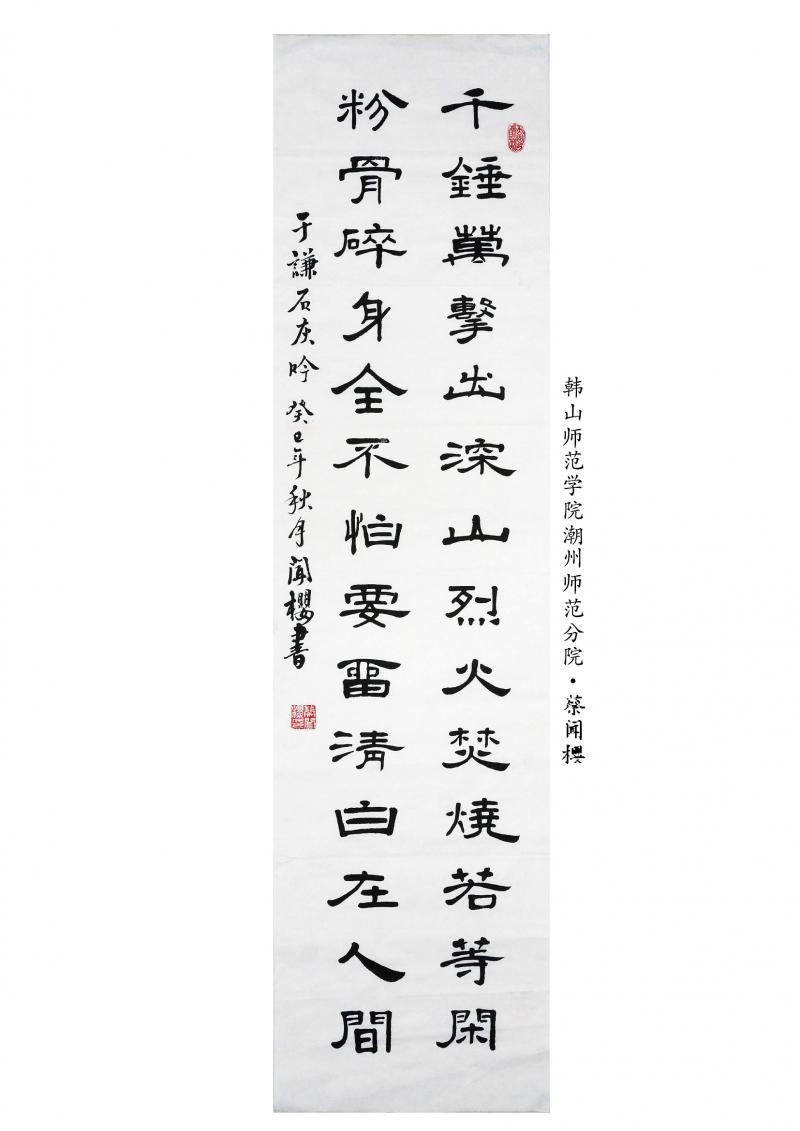 千錘萬擊出深山烈火焚燒若等閑
粉骨碎身全不怕要留清白在人間
于謙石灰吟 癸巳年秋月聞櫻書
韩山师范学院潮州师范分院·蔡闻樱